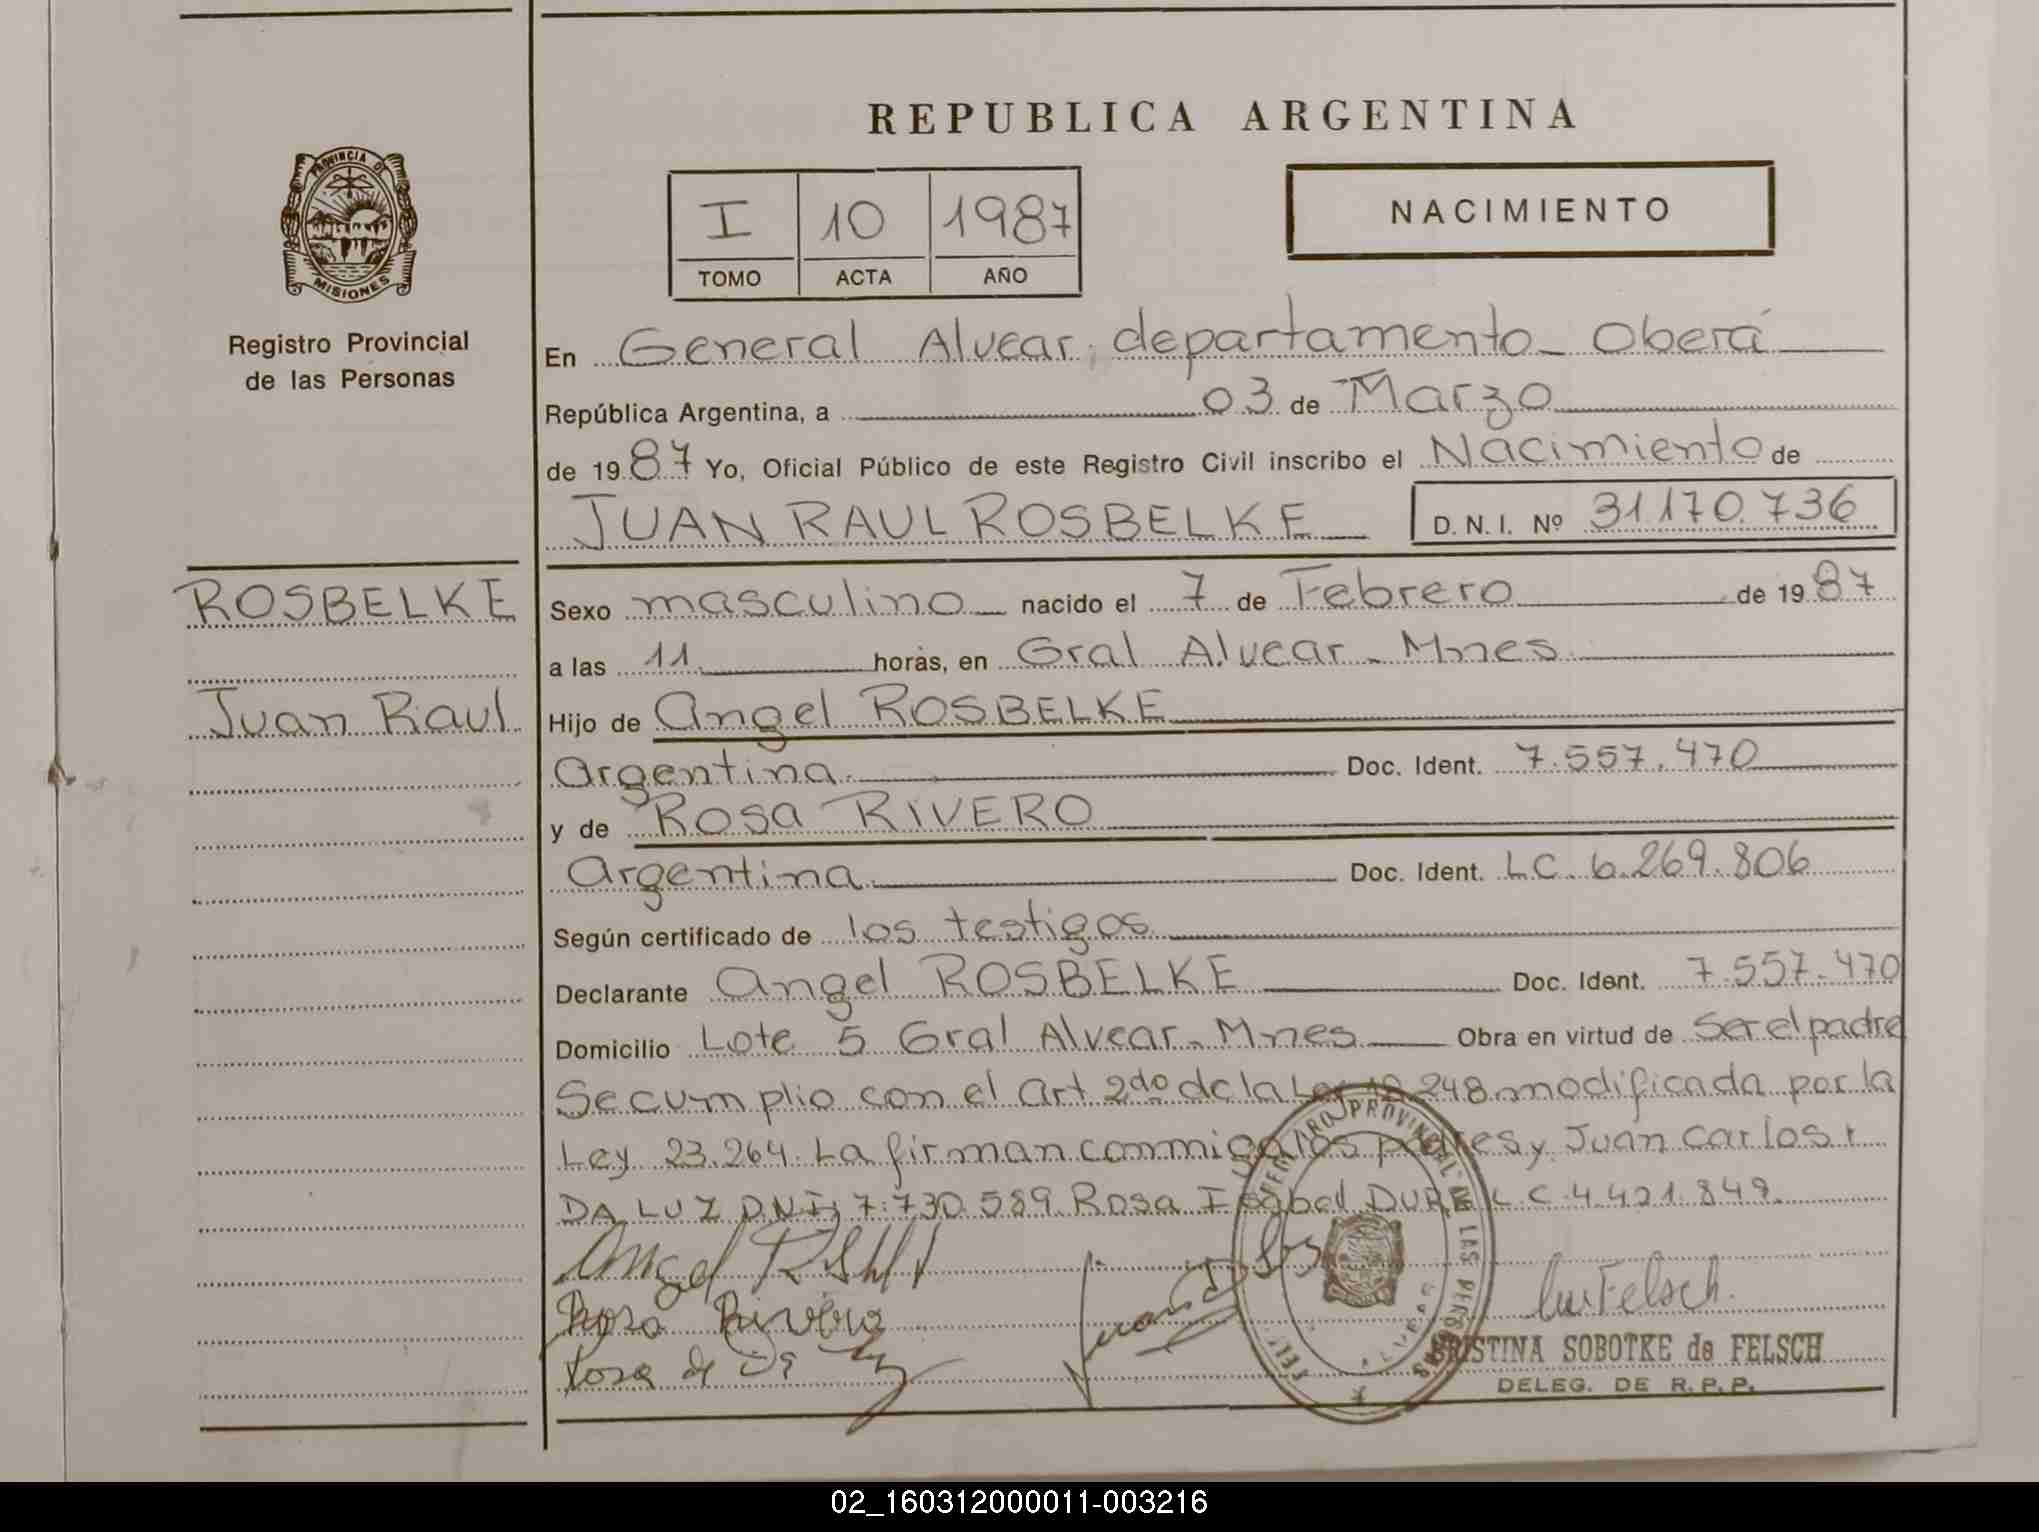 REPUBLICA ARGENTINA
PROVINCIA DE
MISIONES
Registro Provincial
de las Personas
I 10 1987
TOMO ACTA AÑO
NACIMIENTO
En General Alvear, departamento Oberá
República Argentina, a 03 de Marzo
de 1987 Yo, Oficial Público de este Registro Civil inscribo el Nacimiento de
JUAN RAUL ROSBELKE D.N.I. Nº 31.170.736
ROSBELKE
Juan Raul
Sexo masculino nacido el 7 de Febrero de 1987
a las 11 horas, en Gral Alvear - Mnes
Hijo de Angel ROSBELKE
Argentina Doc. Ident. 7.557.470
y de ROSA RIVERO
Argentina Doc. Ident. LC. 6.269.806
Según certificado de los testigos
Declarante Angel ROSBELKE Doc. Ident. 7.557.470
Domicilio Lote 5 Gral Alvear - Mnes Obra en virtud de Ser el padre
Se cumplio con el Art 2do de la Ley 18.248 modificada por la
Ley 23.264. La firman conmigo los padres y Juan Carlos
DA LUZ D.N.I. 7.730.589 Rosa Isabel L.C. 4.421.849.
Angel
Rosa Rivero
Rosa de
CRISTINA SOBOTKE de FELSCH
DELEG. DE R.P.P.
02_160312000011-003216